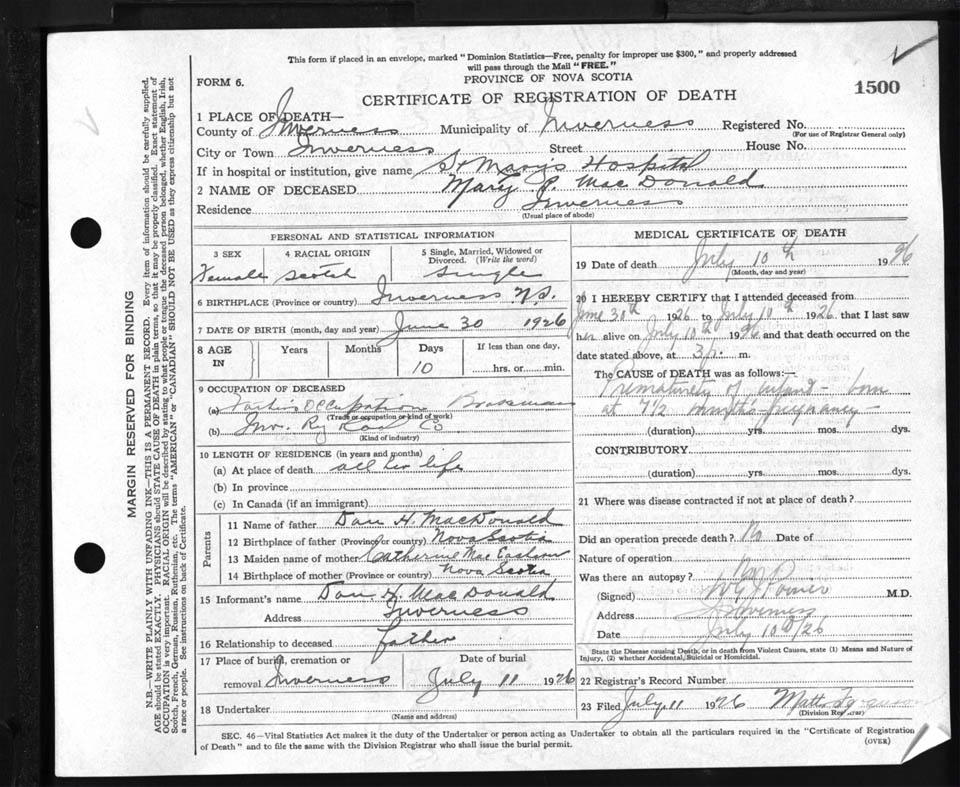 This form if placed in an envelope, marked "Dominion Statistics—Free, penalty for improper use $300," and properly addressed
will pass through the Mail "FREE."
FORM 6.
PROVINCE OF NOVA SCOTIA
1500
CERTIFICATE OF REGISTRATION OF DEATH
1 PLACE OF DEATH—
County of Inverness Municipality of Inverness Registered No.
(For use of Registrar General only)
City or Town Inverness Street House No.
If in hospital or institution, give name St Mary's Hospital
2 NAME OF DECEASED Mary P. MacDonald
Residence Inverness
(Usual place of abode)
MARGIN RESERVED FOR BINDING
N.B.—WRITE PLAINLY WITH UNFADING INK—THIS IS A PERMANENT RECORD. Every item of information should be carefully supplied.
AGE should be stated EXACTLY. PHYSICIANS should STATE CAUSE OF DEATH in plain terms, so that it may be properly classified. Exact statement of
OCCUPATION is very important. RACIAL ORIGIN will be described by stating to what people or tongue the deceased person belonged, whether English, Irish,
Scotch, French, German, Russian, Ruthenian, etc. The terms "AMERICAN" or "CANADIAN" SHOULD NOT BE USED as they express citizenship but not
a race or people. See instructions on back of Certificate.
PERSONAL AND STATISTICAL INFORMATION
3 SEX
4 RACIAL ORIGIN
5 Single, Married, Widowed or
Divorced. (Write the word)
Female Scotch Single
6 BIRTHPLACE (Province or country) Inverness N.S.
7 DATE OF BIRTH (month, day and year) June 30 1926
8 AGE IN
Years Months Days If less than one day,
10 hrs. or min.
9 OCCUPATION OF DECEASED
(a) Occupation
(Trade or occupation or kind of work)
(b) Inv. Ry Co
(Kind of industry)
10 LENGTH OF RESIDENCE (in years and months)
(a) At place of death all her life
(b) In province
(c) In Canada (if an immigrant)
Parents
11 Name of father Dan H. MacDonald
12 Birthplace of father (Province or country) Nova Scotia
13 Maiden name of mother Catherine
14 Birthplace of mother (Province or country) Nova Scotia
15 Informant's name Dan H. MacDonald
Address Inverness
16 Relationship to deceased father
17 Place of burial, cremation or
removal Inverness
Date of burial
July 11 1926
18 Undertaker
(Name and address)
MEDICAL CERTIFICATE OF DEATH
19 Date of death July 10th 1926
(Month, day and year)
20 I HEREBY CERTIFY that I attended deceased from
June 30th 1926 to July 10th 1926. that I last saw
her alive on July 10th 1926 and that death occurred on the
date stated above, at 3 p. m.
The CAUSE of DEATH was as follows:—
Prematurity of Infant - born
at 7 1/2 months pregnancy
(duration) yrs. mos. dys.
CONTRIBUTORY
(duration) yrs. mos. dys.
21 Where was disease contracted if not at place of death?
Did an operation precede death? No Date of
Nature of operation
Was there an autopsy? No
(Signed) M.D.
Address Inverness
Date July 10th/26
State the Disease causing Death, or in death from Violent Causes, state (1) Means and Nature of
Injury, (2) whether Accidental, Suicidal or Homicidal.
22 Registrar's Record Number
23 Filed July 11 1926
(Division Registrar)
SEC. 46—Vital Statistics Act makes it the duty of the Undertaker or person acting as Undertaker to obtain all the particulars required in the "Certificate of Registration
of Death" and to file the same with the Division Registrar who shall issue the burial permit.
(OVER)